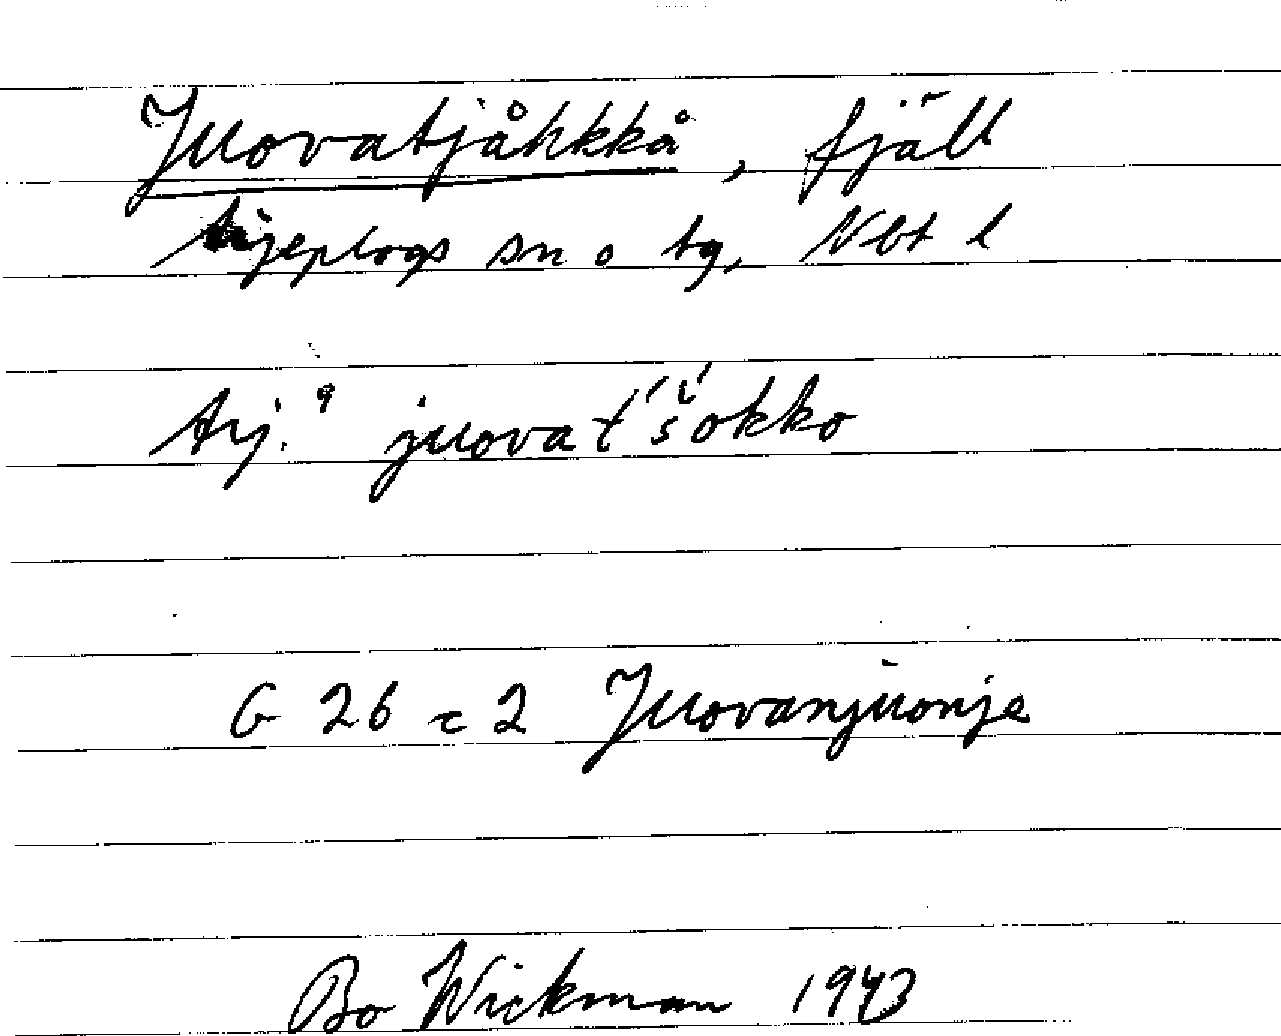 Juovatjåhkkå, fjäll
Arjeplogs sn o tg, Nbt l
Arj. 9 juovat́'šokko
G 26 c 2 Juovanjuonje
Bo Wickman 1943